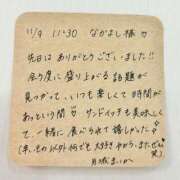 11/9 11:30 なかよし様♡
先日は ありがとう ございました!!
会う度に 盛り上がる 話題が
見つかって、いつも 楽しくて 時間が
あっという間♡ サンドイッチも 美味しく
て、一緒に 食べられて 嬉しかった♡
(辛いもの以外何でも 大好き やから、また、ぜひ
笑)